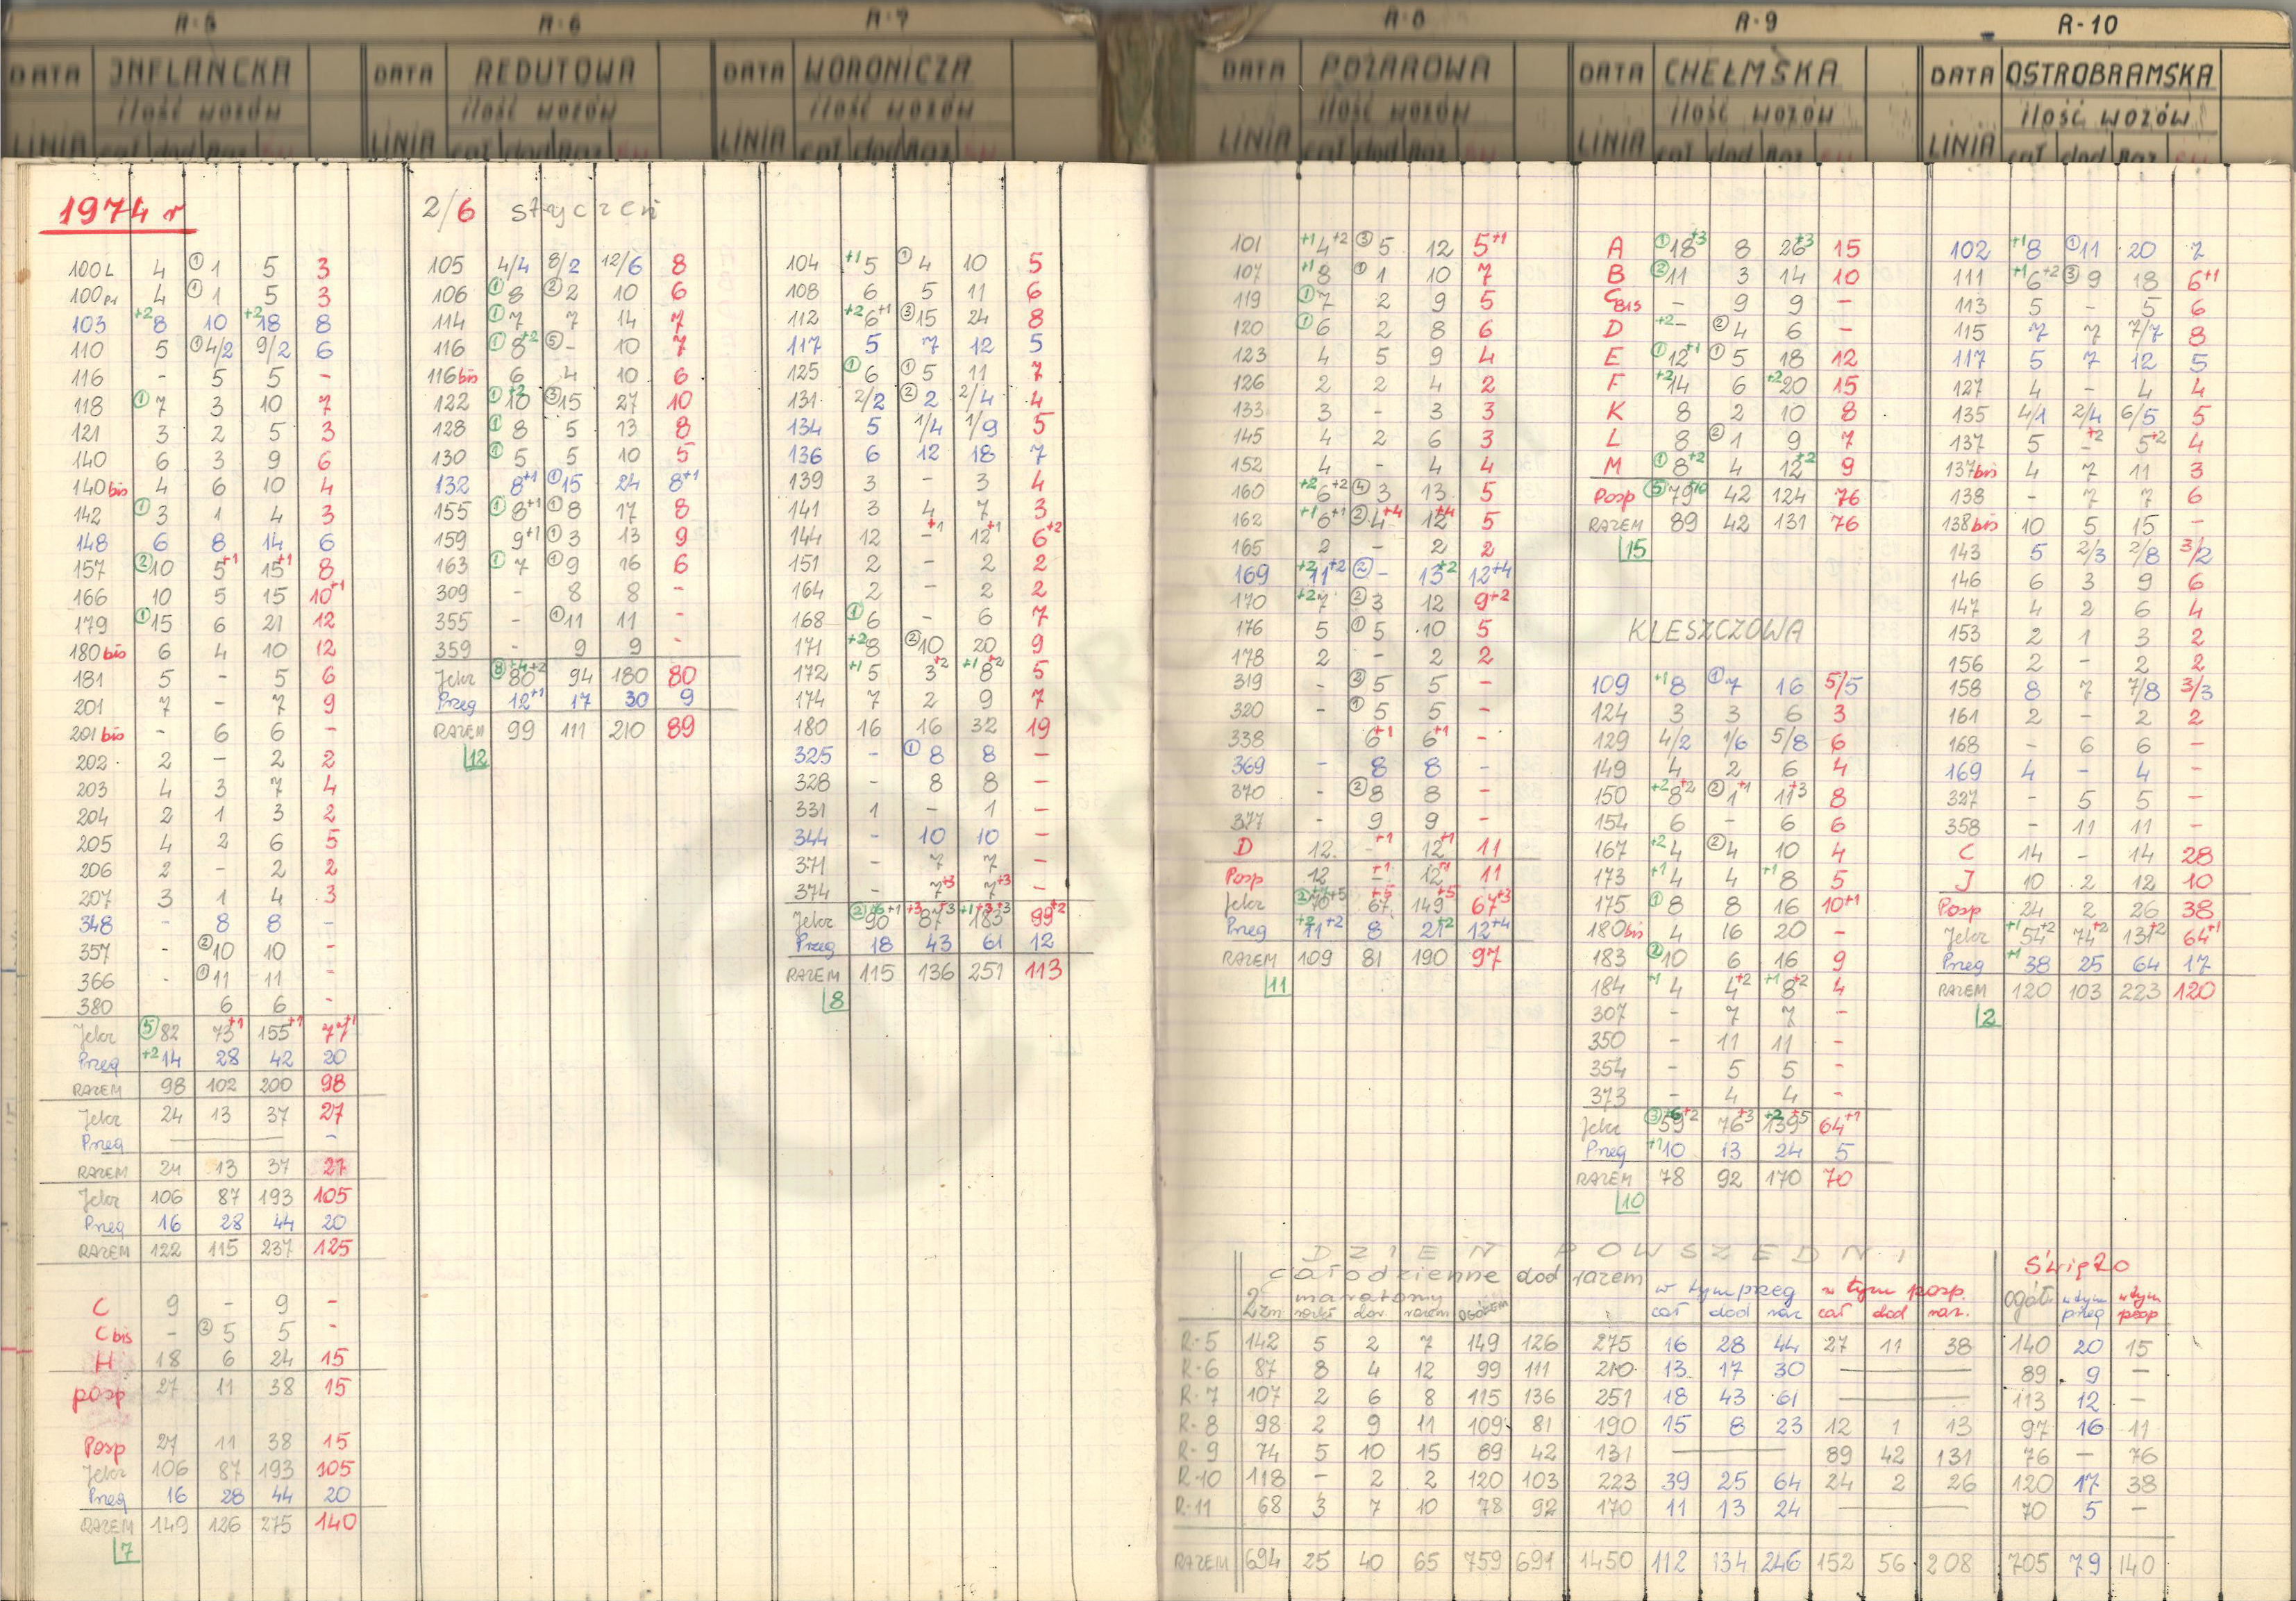 R-5 R-6 R-7 R-8 R-9 R-10
DATA INFLANCKA DATA REDUTOWA DATA WORONICZA DATA POŻAROWA DATA CHEŁMSKA DATA OSTROBRAMSKA
ilość wozów ilość wozów ilość wozów ilość wozów ilość wozów ilość wozów
LINIA cał dod Raz LINIA cał dod Raz LINIA cał dod Raz LINIA cał dod Raz LINIA cał dod Raz LINIA cał dod Raz
1974 r
2/6 styczeń
100L 4 ① 1 5 3
100Pr 4 ① 1 5 3
103 +2 8 10 +2 18 8
110 5 ① 4/2 9/2 6
116 - 5 5 -
118 ① 7 3 10 7
121 3 2 5 3
140 6 3 9 6
140 bis 4 6 10 4
142 ① 3 1 4 3
148 6 8 14 6
157 ② 10 5 +1 15 +1 8
166 10 5 15 10 +1
179 ① 15 6 21 12
180 bis 6 4 10 12
181 5 - 5 6
201 7 - 7 9
201 bis - 6 6 -
202 2 - 2 2
203 4 3 7 4
204 2 1 3 2
205 4 2 6 5
206 2 - 2 2
207 3 1 4 3
348 - 8 8 -
357 - ② 10 10 -
366 - ① 11 11 -
380 6 6 -
Jelcz ⑤ 82 73 +1 155 +1 77 +1
Przeg +2 14 28 42 20
RAZEM 98 102 200 98
Jelcz 24 13 37 27
Przeg -
RAZEM 24 13 37 27
Jelcz 106 87 193 105
Przeg 16 28 44 20
RAZEM 122 115 237 125
C 9 - 9 -
C bis - ② 5 5 -
H 18 6 24 15
posp 27 11 38 15
Posp 27 11 38 15
Jelcz 106 87 193 105
Przeg 16 28 44 20
RAZEM 149 126 275 140
7
105 4/4 8/2 12/6 8
106 ① 8 ② 2 10 6
114 ① 7 7 14 7
116 ① 8 +2 ⑤ - 10 7
116 bis 6 4 10 6
122 ① 10 +2 ③ 15 27 10
128 ① 8 5 13 8
130 ① 5 5 10 5
132 8 +1 ① 15 24 8 +1
155 ① 8 +1 ① 8 17 8
159 9 +1 ① 3 13 9
163 ① 7 ① 9 16 6
309 - 8 8 -
355 - ① 11 11 -
359 - 9 9 -
Jelcz ⑧ 80 +4 +2 94 180 80
Przeg 12 +1 17 30 9
RAZEM 99 111 210 89
12
104 +1 5 ① 4 10 5
108 6 5 11 6
112 +2 6 +1 ③ 15 24 8
117 5 7 12 5
125 ① 6 ① 5 11 7
131 2/2 ② 2 2/4 4
134 5 1/4 1/9 5
136 6 12 18 7
139 3 - 3 4
141 3 4 7 3
144 12 - +1 12 +1 6 +2
151 2 - 2 2
164 2 - 2 2
168 ① 6 - 6 7
171 +2 8 ② 10 20 9
172 +1 5 3 +2 +1 8 +2 5
174 7 2 9 7
180 16 16 32 19
325 - ① 8 8 -
328 - 8 8 -
331 1 - 1 -
344 - 10 10 -
371 - 7 7 -
374 - 7 +3 7 +3 -
Jelcz ② 90 +6 +1 +3 87 +3 +1 183 +3 +3 99 +2
Przeg 18 43 61 12
RAZEM 115 136 251 113
8
101 +1 4 +2 ③ 5 12 5 +1
107 +1 8 ① 1 10 7
119 ① 7 2 9 5
120 ① 6 2 8 6
123 4 5 9 4
126 2 2 4 2
133 3 - 3 3
145 4 2 6 3
152 4 - 4 4
160 +2 6 +2 ④ 3 13 5
162 +1 6 +1 ② 4 +4 12 +4 5
165 2 - 2 2
169 +2 11 +2 ② - 13 +2 12 +4
170 +2 7 ② 3 12 9 +2
176 5 ① 5 10 5
178 2 - 2 2
319 - ② 5 5 -
320 - ① 5 5 -
338 6 +1 6 +1 -
369 - 8 8 -
370 - ② 8 8 -
377 - 9 9 -
D 12 - +1 12 +1 11
Posp 12 - +1 12 +1 11
Jelcz ② 70 +5 67 +5 149 +5 67 +3
Przeg +2 11 +2 8 21 +2 12 +4
RAZEM 109 81 190 97
11
A ① 18 +3 8 26 +3 15
B ② 11 3 14 10
C BIS - 9 9 -
D +2 - ② 4 6 -
E ① 12 +1 ① 5 18 12
F +2 14 6 +2 20 15
K 8 2 10 8
L 8 ② 1 9 7
M ① 8 +2 4 12 +2 9
Posp ⑤ 79 +10 42 124 76
RAZEM 89 42 131 76
15
KLESZCZOWA
109 +1 8 ① 7 16 5/5
124 3 3 6 3
129 4/2 1/6 5/8 6
149 4 2 6 4
150 +2 8 +2 ② 1 +1 11 +3 8
154 6 - 6 6
167 +2 4 ② 4 10 4
173 +1 4 4 +1 8 5
175 ① 8 8 16 10 +1
180 bis 4 16 20 -
183 ② 10 6 16 9
184 +1 4 4 +2 +1 8 +2 4
307 - 7 7 -
350 - 11 11 -
354 - 5 5 -
373 - 4 4 -
Jelcz ③ 59 +6 +2 76 +3 +2 139 +5 64 +1
Przeg +1 10 13 24 5
RAZEM 78 92 170 70
10
102 +1 8 ① 11 20 7
111 +1 6 +2 ③ 9 18 6 +1
113 5 - 5 6
115 7 7 7/7 8
117 5 7 12 5
127 4 - 4 4
135 4/1 2/4 6/5 5
137 5 - +2 5 +2 4
137 bis 4 7 11 3
138 - 7 7 6
138 bis 10 5 15 -
143 5 2/3 2/8 3/2
146 6 3 9 6
147 4 2 6 4
153 2 1 3 2
156 2 - 2 2
158 8 7 7/8 3/3
161 2 - 2 2
168 - 6 6 -
169 4 - 4 -
327 - 5 5 -
358 - 11 11 -
C 14 - 14 28
J 10 2 12 10
Posp 24 2 26 38
Jelcz +1 54 +2 74 +2 131 +2 64 +1
Przeg +1 38 25 64 17
RAZEM 120 103 223 120
2
DZIEŃ POWSZEDNI Święto
całodzienne dod razem w tym przeg w tym posp. ogół. w tym przeg w tym posp
2zm maratony razem OGÓŁEM cał dod raz cał dod raz.
R-5 142 5 2 7 149 126 275 16 28 44 27 11 38 140 20 15
R-6 87 8 4 12 99 111 210 13 17 30 — 89 9 -
R-7 107 2 6 8 115 136 251 18 43 61 — 113 12 -
R-8 98 2 9 11 109 81 190 15 8 23 12 1 13 97 16 11
R-9 74 5 10 15 89 42 131 — 89 42 131 76 - 76
R-10 118 - 2 2 120 103 223 39 25 64 24 2 26 120 17 38
R-11 68 3 7 10 78 92 170 11 13 24 — 70 5 -
RAZEM 694 25 40 65 759 691 1450 112 134 246 152 56 208 705 79 140